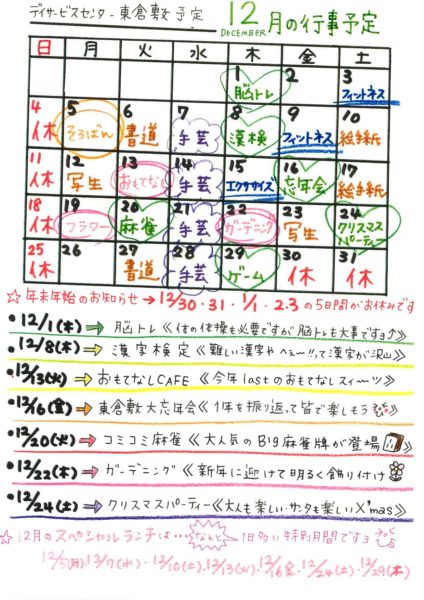 デイサービスセンター東倉敷 予定
12月の行事予定
DECEMBER
日 月 火 水 木 金 土
1 2 3
脳トレ フィットネス
4 5 6 7 8 9 10
休 そろばん 書道 手芸 漢検 フィットネス 絵手紙
11 12 13 14 15 16 17
休 写生 おもてなし 手芸 エクササイズ 忘年会 絵手紙
18 19 20 21 22 23 24
休 フラワー 麻雀 手芸 ガーデニング 写生 クリスマスパーティー
25 26 27 28 29 30 31
休 書道 手芸 ゲーム 休 休
☆年末年始のお知らせ→12/30・31・1/1・2・3の5日間がお休みです
●12/1(木)⇒脳トレ《体の体操も必要ですが脳トレも大事ですョ》
●12/8(木)⇒漢字検定《難しい漢字やへぇ〜!!って漢字が沢山》
●12/13(火)⇒おもてなしCAFE《今年lastのおもてなしスイーツ》
●12/16(金)⇒東倉敷大忘年会《1年を振り返って皆で楽しもう》
●12/20(火)⇒コミコミ麻雀《大人気のBig麻雀牌が登場》
●12/22(木)⇒ガーデニング《新年に迎けて明るく飾り付け》
●12/24(土)⇒クリスマスパーティー《大人も楽しい サンタも楽しいX'mas》
☆12月のスペシャルランチは…なんと1日多い特別月間ですョ
12/5(月)・12/7(水)・12/10(土)・12/13(火)・12/16金・12/24(土)・12/29(木)